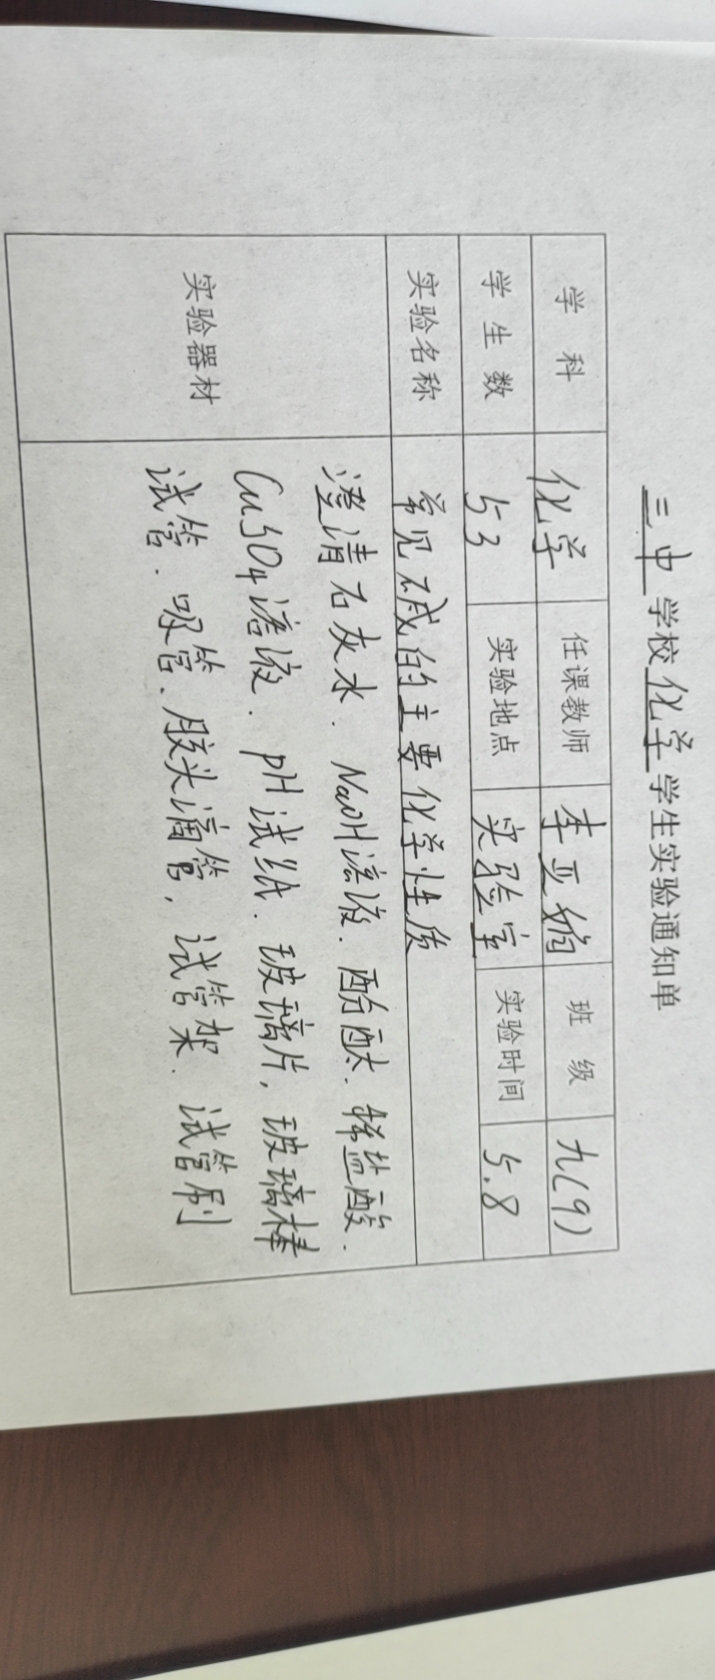 三中学校化学学生实验通知单
学科 化学 任课教师 李亚娟 班级 九(9)
学生数 53 实验地点 实验室 实验时间 5.8
实验名称 常见碱的主要化学性质
实验器材 澄清石灰水、NaOH溶液、酚酞、稀盐酸、
CuSO4溶液、pH试纸、玻璃片，玻璃棒
试管、吸管、胶头滴管，试管架、试管刷